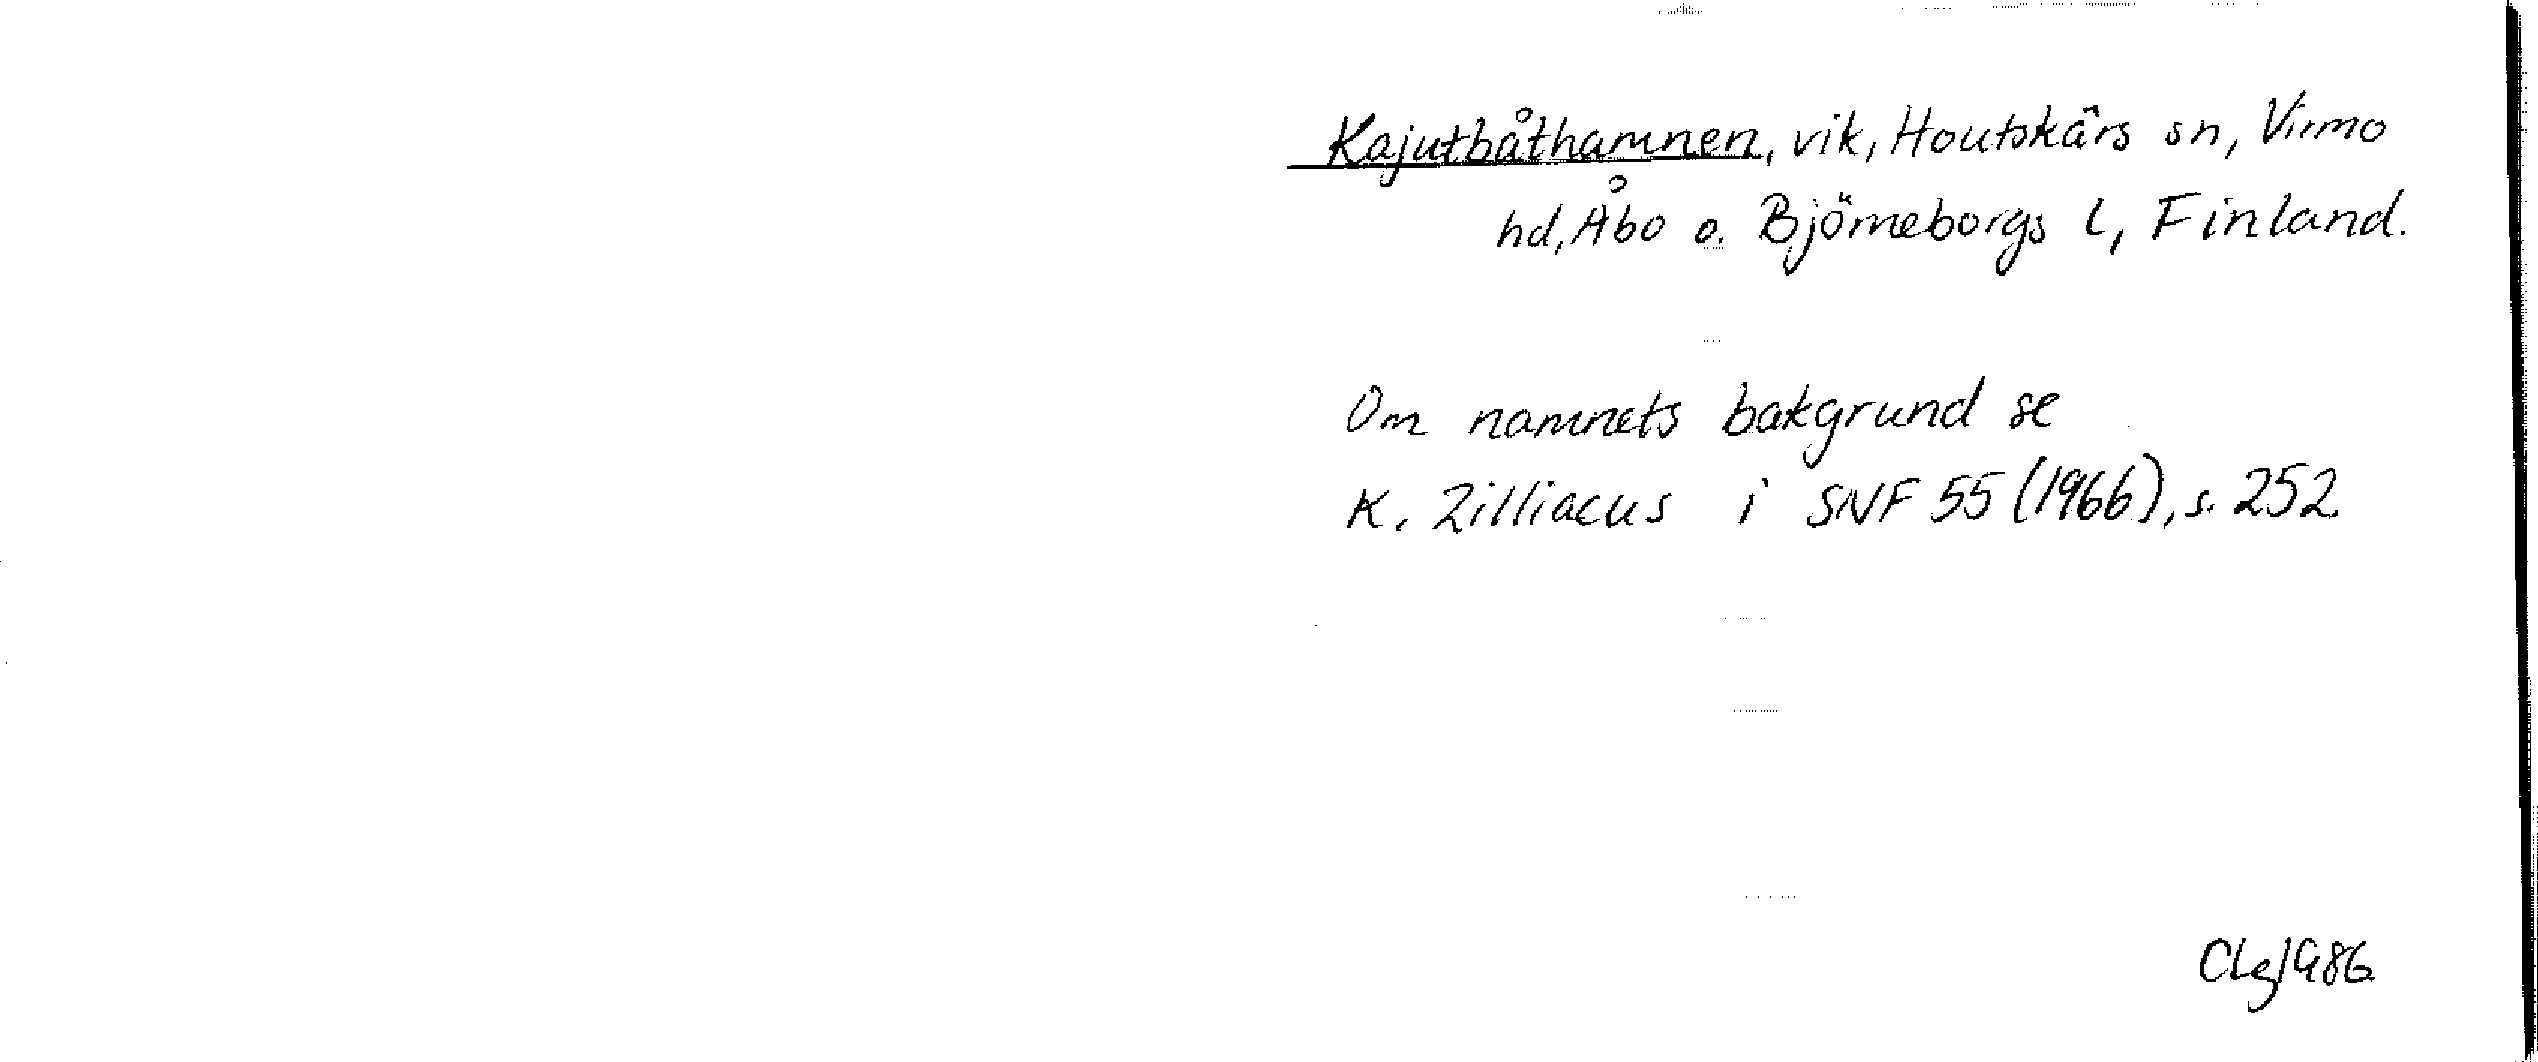 Kajutbåthamnen, vik, Houtskärs sn, Virmo
hd, Åbo o. Björneborgs l, Finland.
Om namnets bakgrund se
K. Zilliacus i SNF 55 (1966), s. 252.
1986